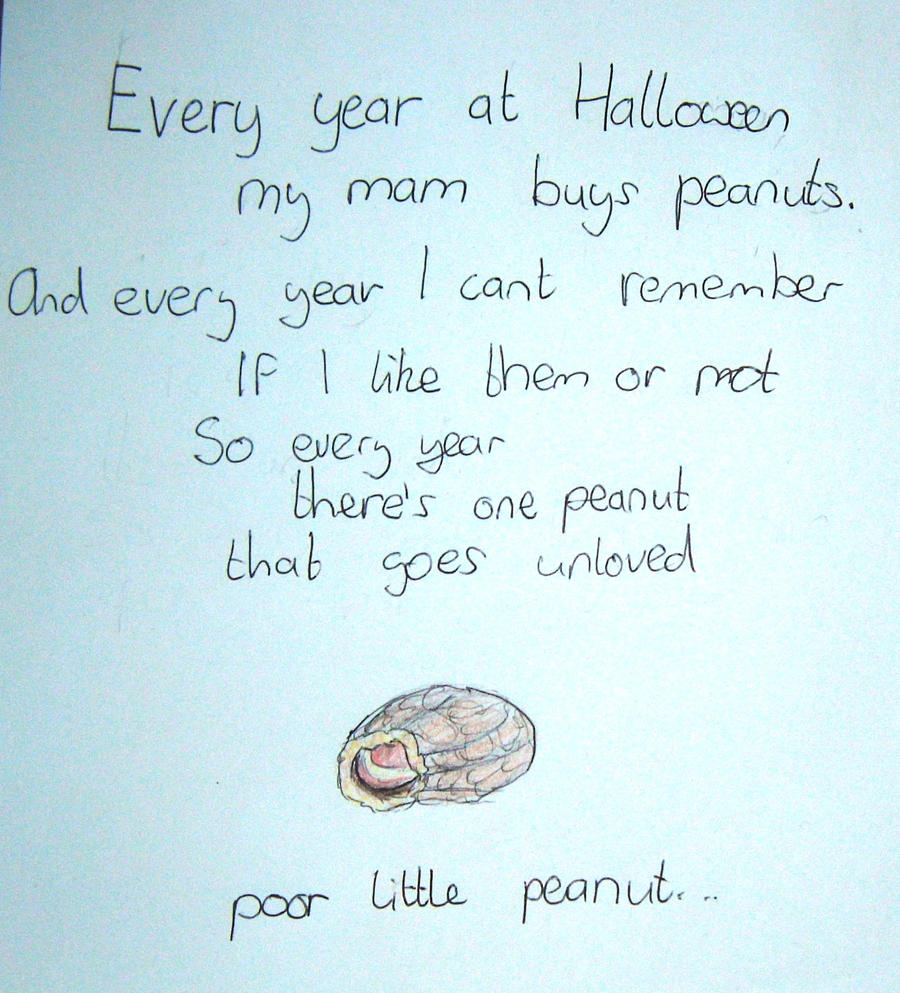 Every year at Halloween
my mam buys peanuts.
And every year I cant remember
If I like them or not
So every year
there's one peanut
that goes unloved
poor little peanut...